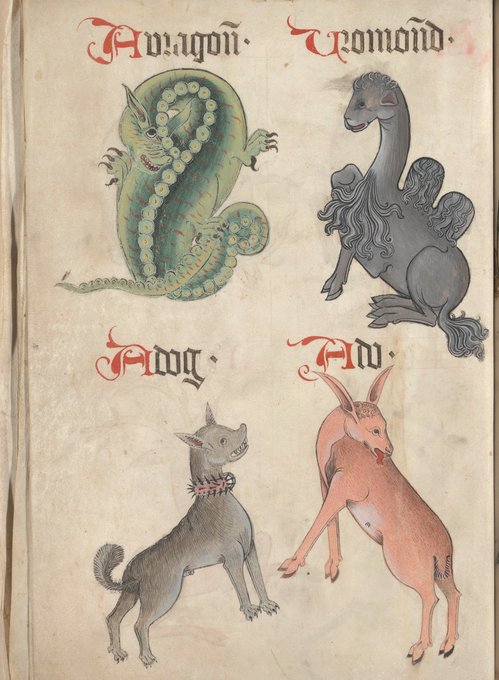 Adragon̄ ·
Dromon̄d ·
Adog ·
Ado ·